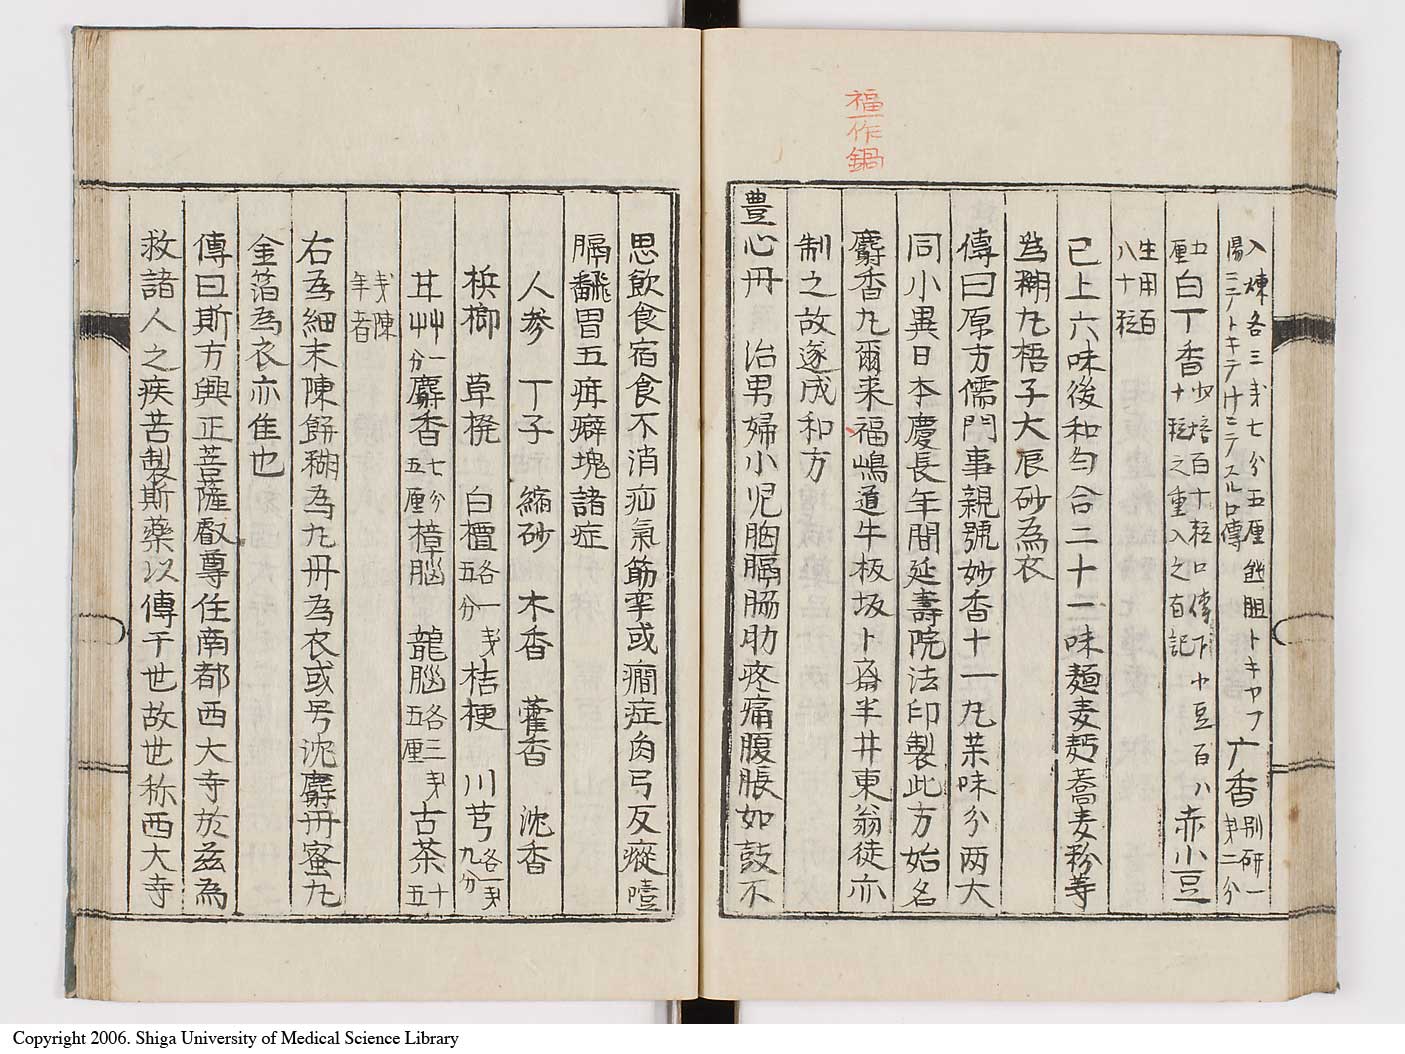 福作鍋
入煉各三戔七分五厘
湯ニテトキテ
トキヤフ
广香別研一戔二分
五厘白丁香
十粒之重入之百記
赤小豆
生用百八十粒
已上六味後和匀合二十一味麺麦麪蕎麦粉等
為糊丸梧子大辰砂為衣
傳曰原方儒門事親號妙香十一丸某味分两大
同小異日本慶長年間延壽院法印製此方始名
麝香丸爾来福嶋道牛板坂卜齋半井東翁徒亦
制之故遂成和方
豊心丹 治男婦小児胸膈脇肋疼痛腹脹如鼓不
思飲食宿食不消疝氣筋挛或癎症肉弓反瘲噎
膈飜胃五痺癖塊諸症
人参 丁子 縮砂 木香 藿香 沈香
梹榔 草㮈 白檀各一戔五分 桔梗 川芎各一戔九分
甘艸一分 麝香七分五厘 樟脳 龍脳各三戔五厘 古茶十五
戔陳年者
右為細末陳餅糊為丸丹為衣或号沈麝丹蜜丸
金箔為衣亦佳也
傳曰斯方興正菩薩叡尊住南都西大寺於兹為
救諸人之疾苦製斯藥以傳于世故世称西大寺
Copyright 2006. Shiga University of Medical Science Library